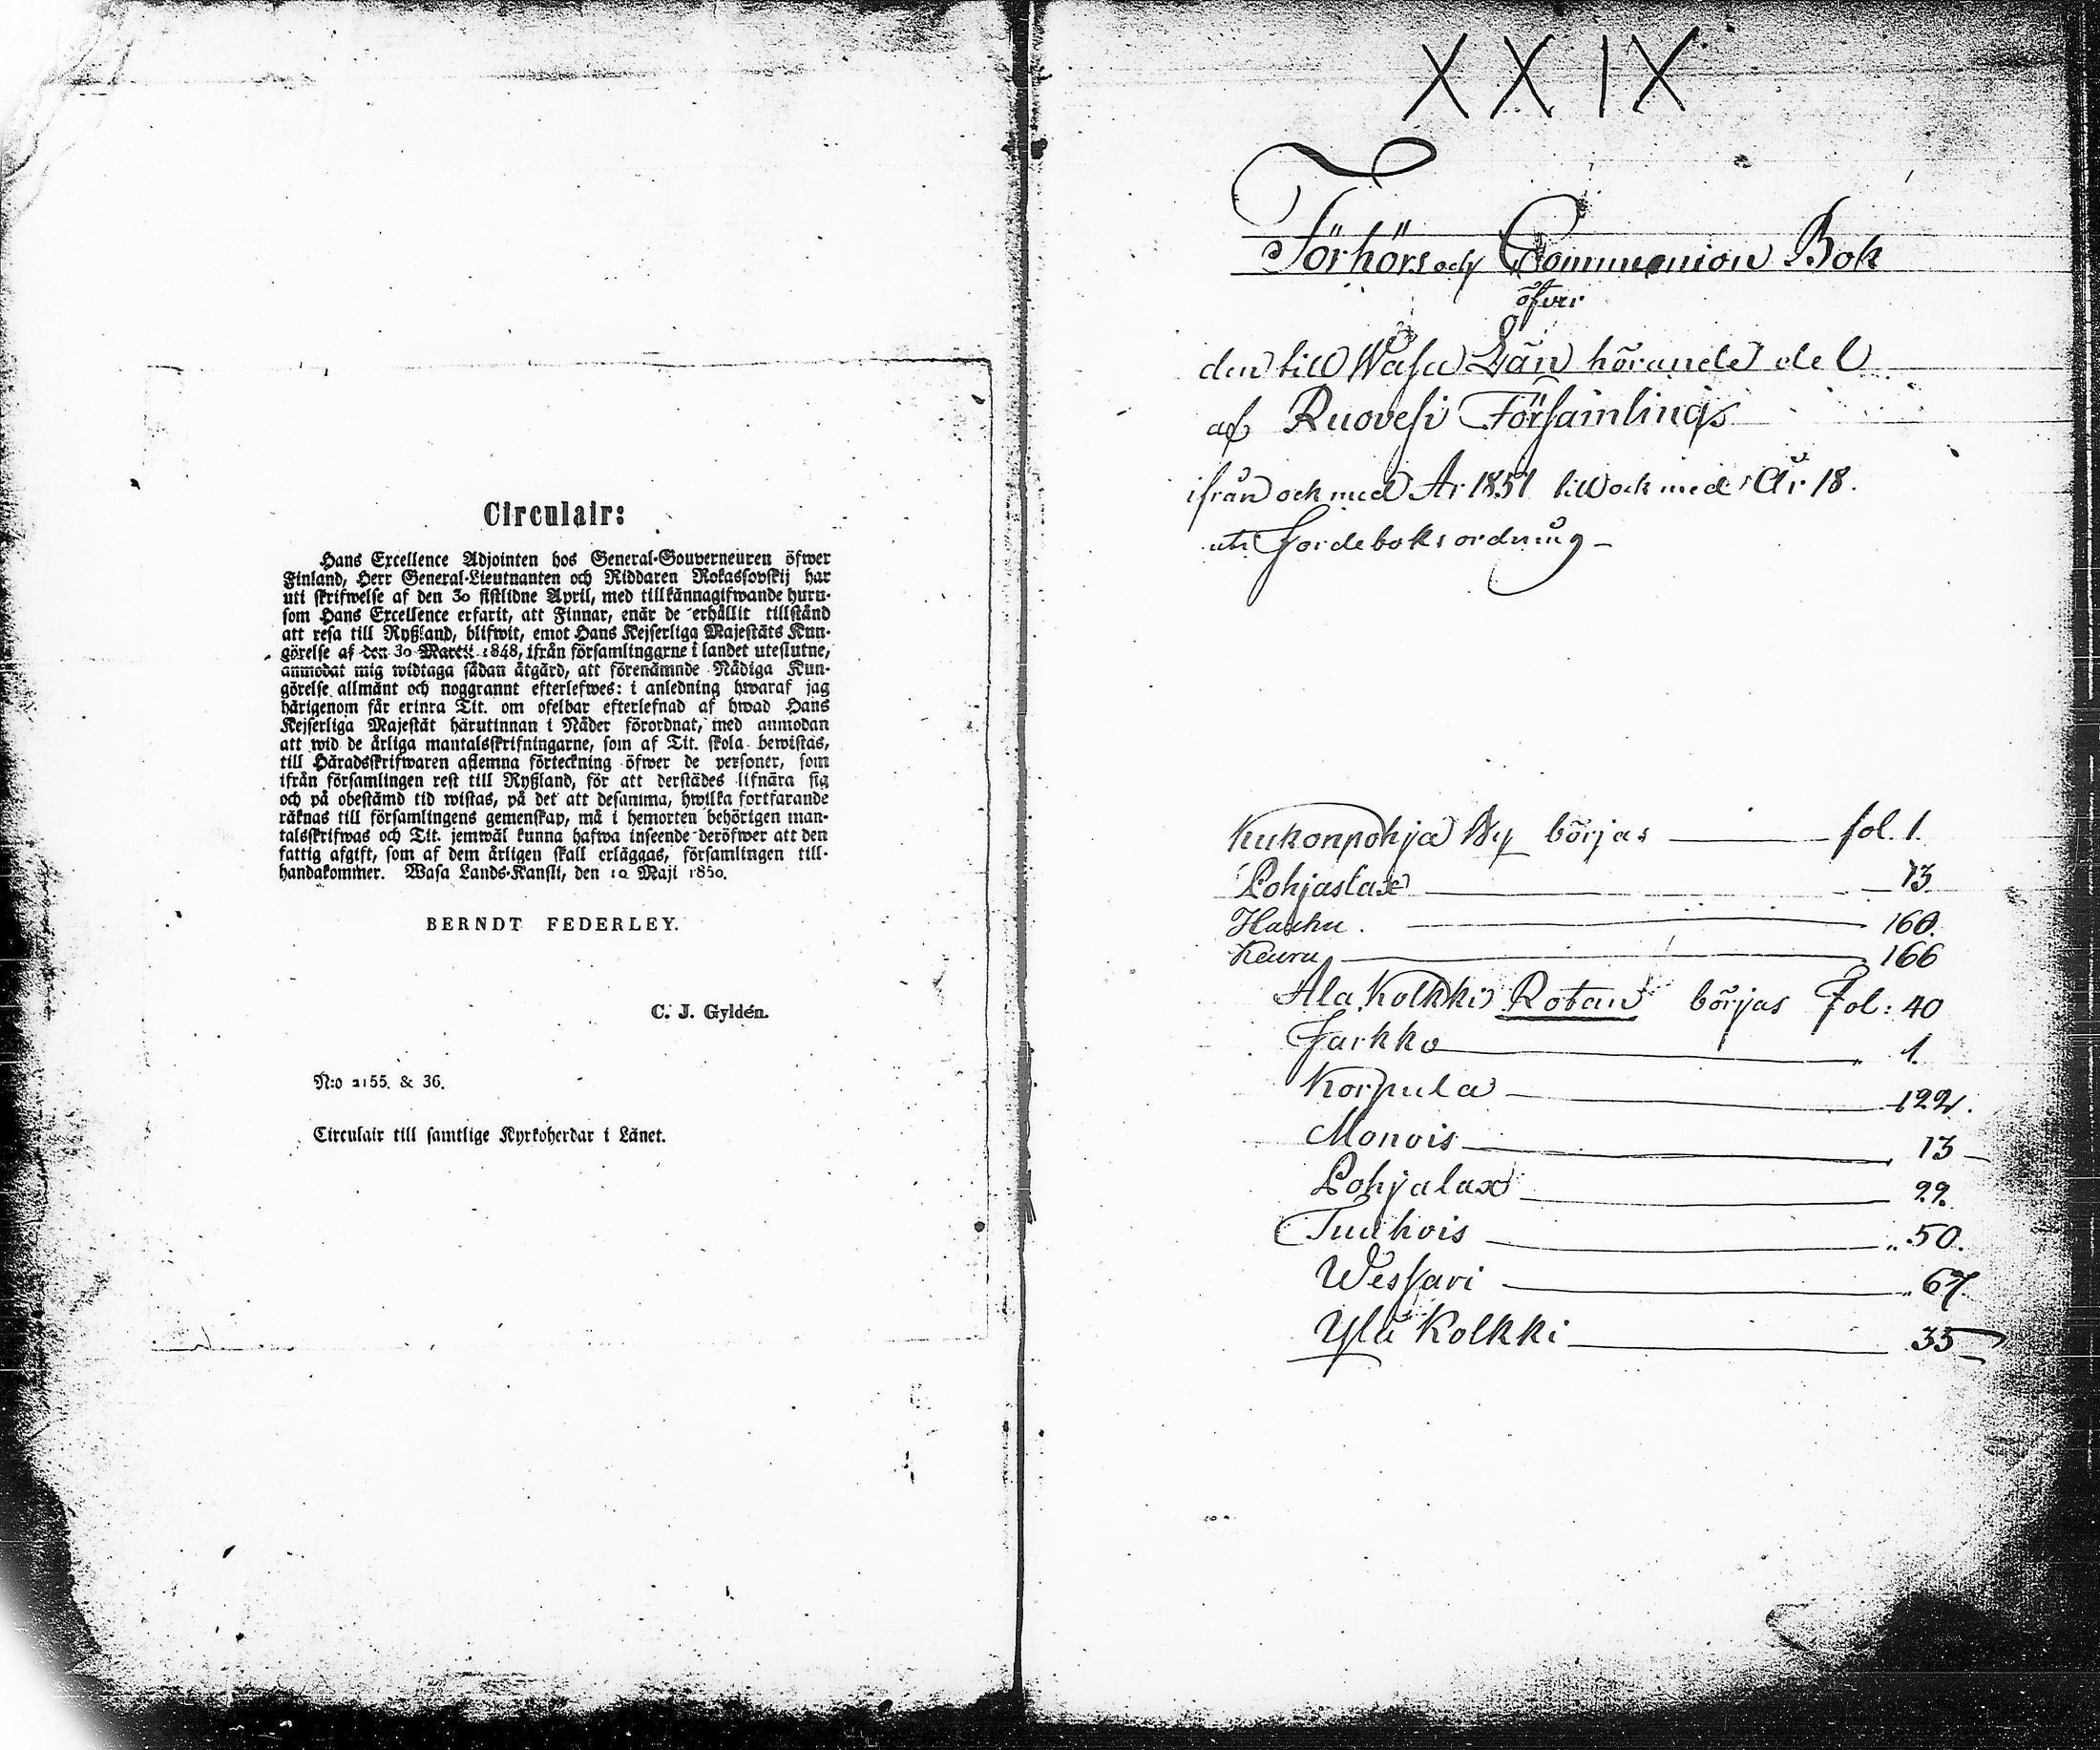 Circulair:
Hans Excellence Adjointen hos General-Gouverneuren öfwer
Finland, Herr General-Lieutnanten och Riddaren Rokassovskij har
uti skrifwelse af den 30 sistlidne April, med tillkännagifwande huru-
som Hans Excellence erfarit, att Finnar, enär de erhållit tillstånd
att resa till Ryßland, blifwit, emot Hans Kejserliga Majestäts Kun-
görelse af den 30 Martii 1848, ifrån församlingarne i landet uteslutne,
anmodat mig widtaga sådan åtgärd, att förenämnde Nådiga Kun-
görelse allmänt och noggrannt efterlefwes: i anledning hwaraf jag
härigenom får erinra Tit. om ofelbar efterlefnad af hwad Hans
Kejserliga Majestät härutinnan i Nåder förordnat, med anmodan
att wid de årliga mantalsskrifningarne, som af Tit. skola bewistas,
till Häradsskrifwaren aflemna förteckning öfwer de personer, som
ifrån församlingen rest till Ryßland, för att derstädes lifnära sig
och på obestämd tid wistas, på det att desamma, hwilka fortfarande
räknas till församlingens gemenskap, må i hemorten behörigen man-
talsskrifwas och Tit. jemwäl kunna hafwa inseende deröfwer att den
fattig afgift, som af dem årligen skall erläggas, församlingen till-
handakommer. Wasa Lands-Kansli, den 10 Maji 1850.
BERNDT FEDERLEY.
C. J. Gyldén.
N:o 2155. & 36.
Circulair till samtlige Kyrkoherdar i Länet.
XXIX
Förhörs och Communion Bok
öfver
den till Wasa Län hörande del
af Ruovesi Församling
ifrån och med År 1851 till och med År 18.
uti Jordeboks ordning –
Kukonpohja By börjas fol. 1.
Pohjaslax 73
Hauhu. 160.
Keuru 166
Ala Kolkki Rotan börjas Fol: 40
Jarkko 1.
Korpula 122.
Monois 13
Pohjalax 22
Tuuhois „ 50.
Wessari „ 67.
Ylä Kolkki 35